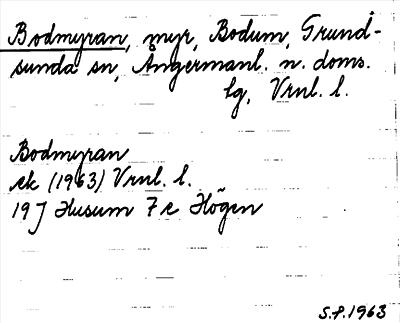 Bodmyran, myr, Bodum, Grund-
sunda sn, Ångermanl. n. doms.
lg, Vrnl. l.
Bodmyran
ek (1963) Vrnl. l.
19 J Husum 7 c Högen
S.P. 1963